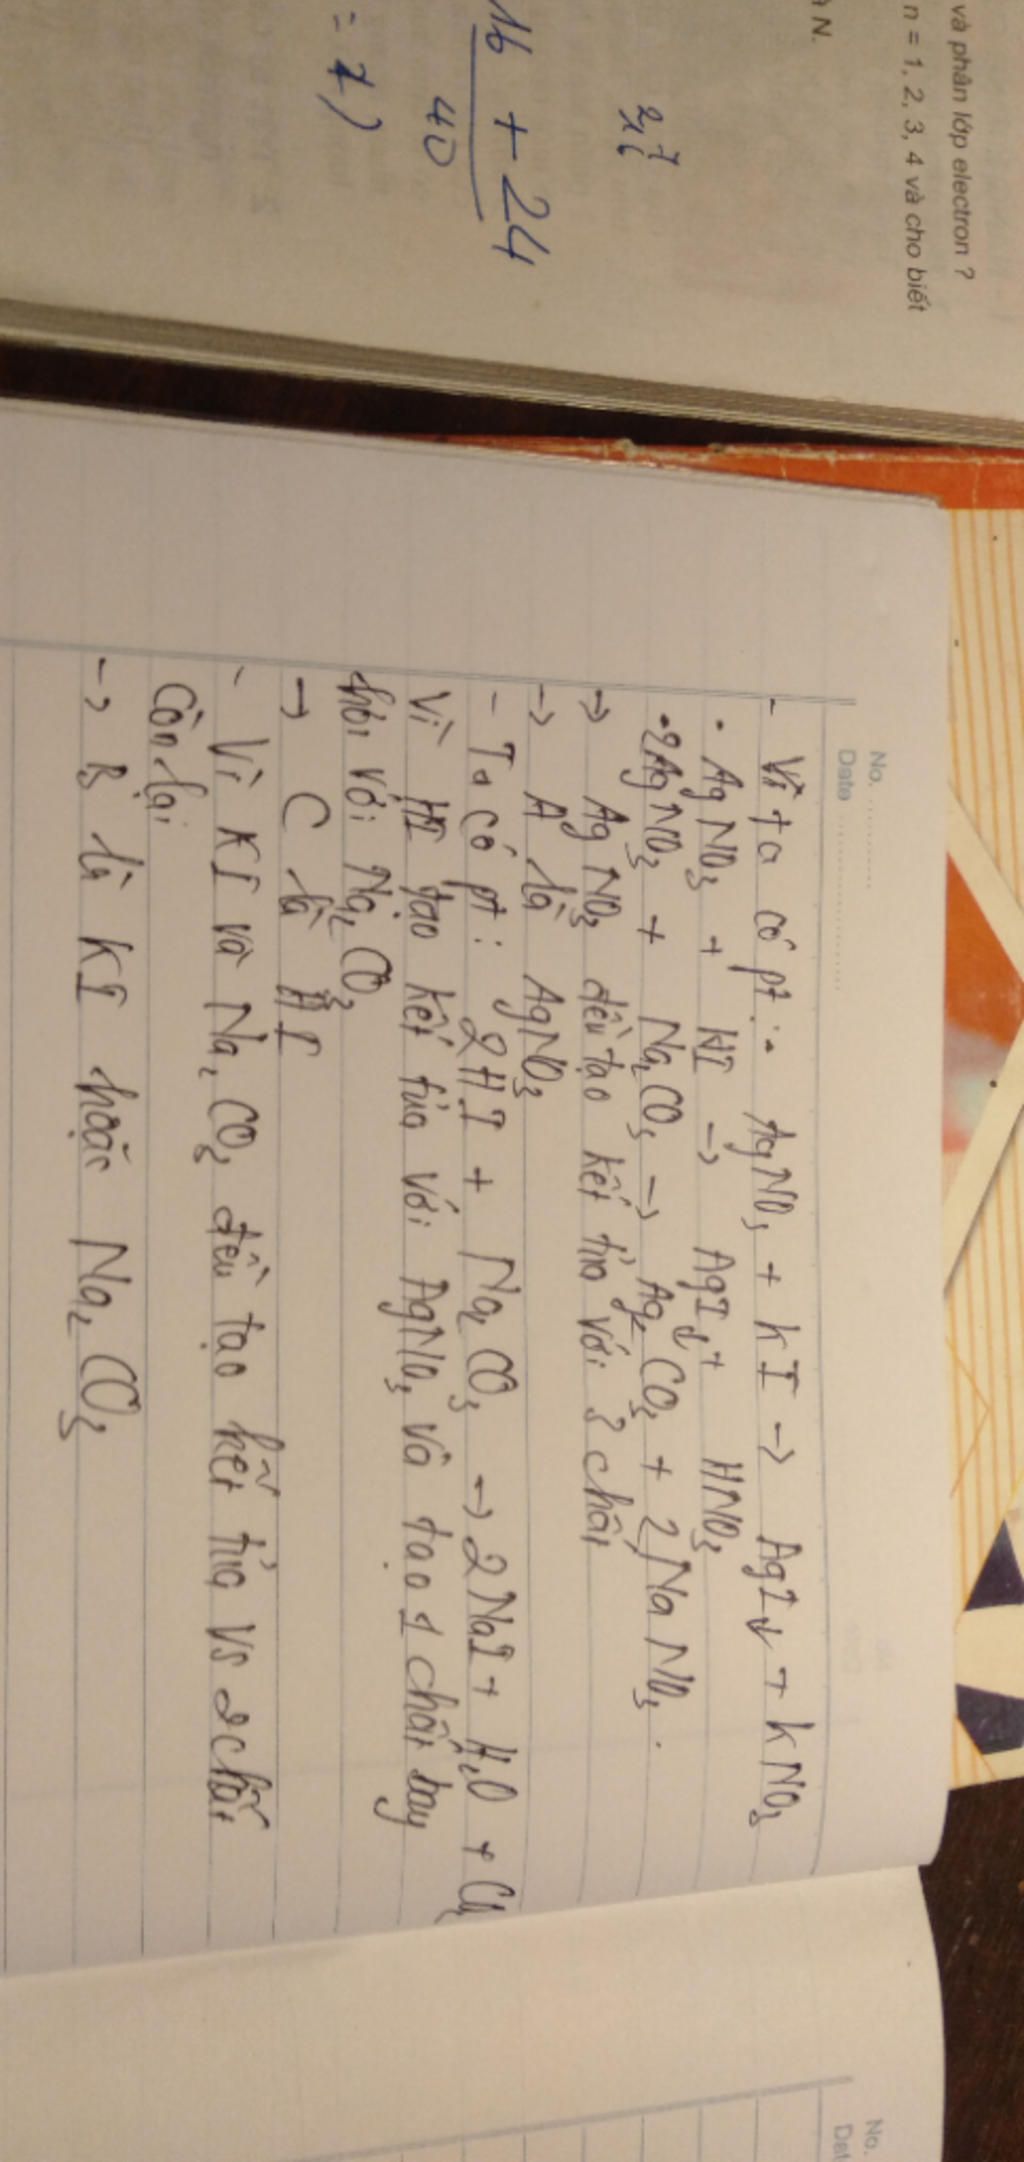 và phân lớp electron ?
n = 1, 2, 3, 4 và cho biết
à N.
16 + 24
40
= 1)
No. ............
Date ....................
- Vì ta có pt: • AgNO3 + KI -> AgI↓ + KNO3
• AgNO3 + HI -> AgI↓ + HNO3
• 2AgNO3 + Na2CO3 -> Ag2CO3 + 2NaNO3.
-> AgNO3 đều tạo kết tủa với 3 chất
-> A là AgNO3
- Ta có pt: 2HI + Na2CO3 -> 2NaI + H2O + CO2
Vì HI tạo kết tủa với AgNO3 và tạo 1 chất bay
hơi với Na2CO3
-> C là HI
- Vì KI và Na2CO3 đều tạo kết tủa vs 2 chất
còn lại
-> B là KI hoặc Na2CO3
No.
Dat